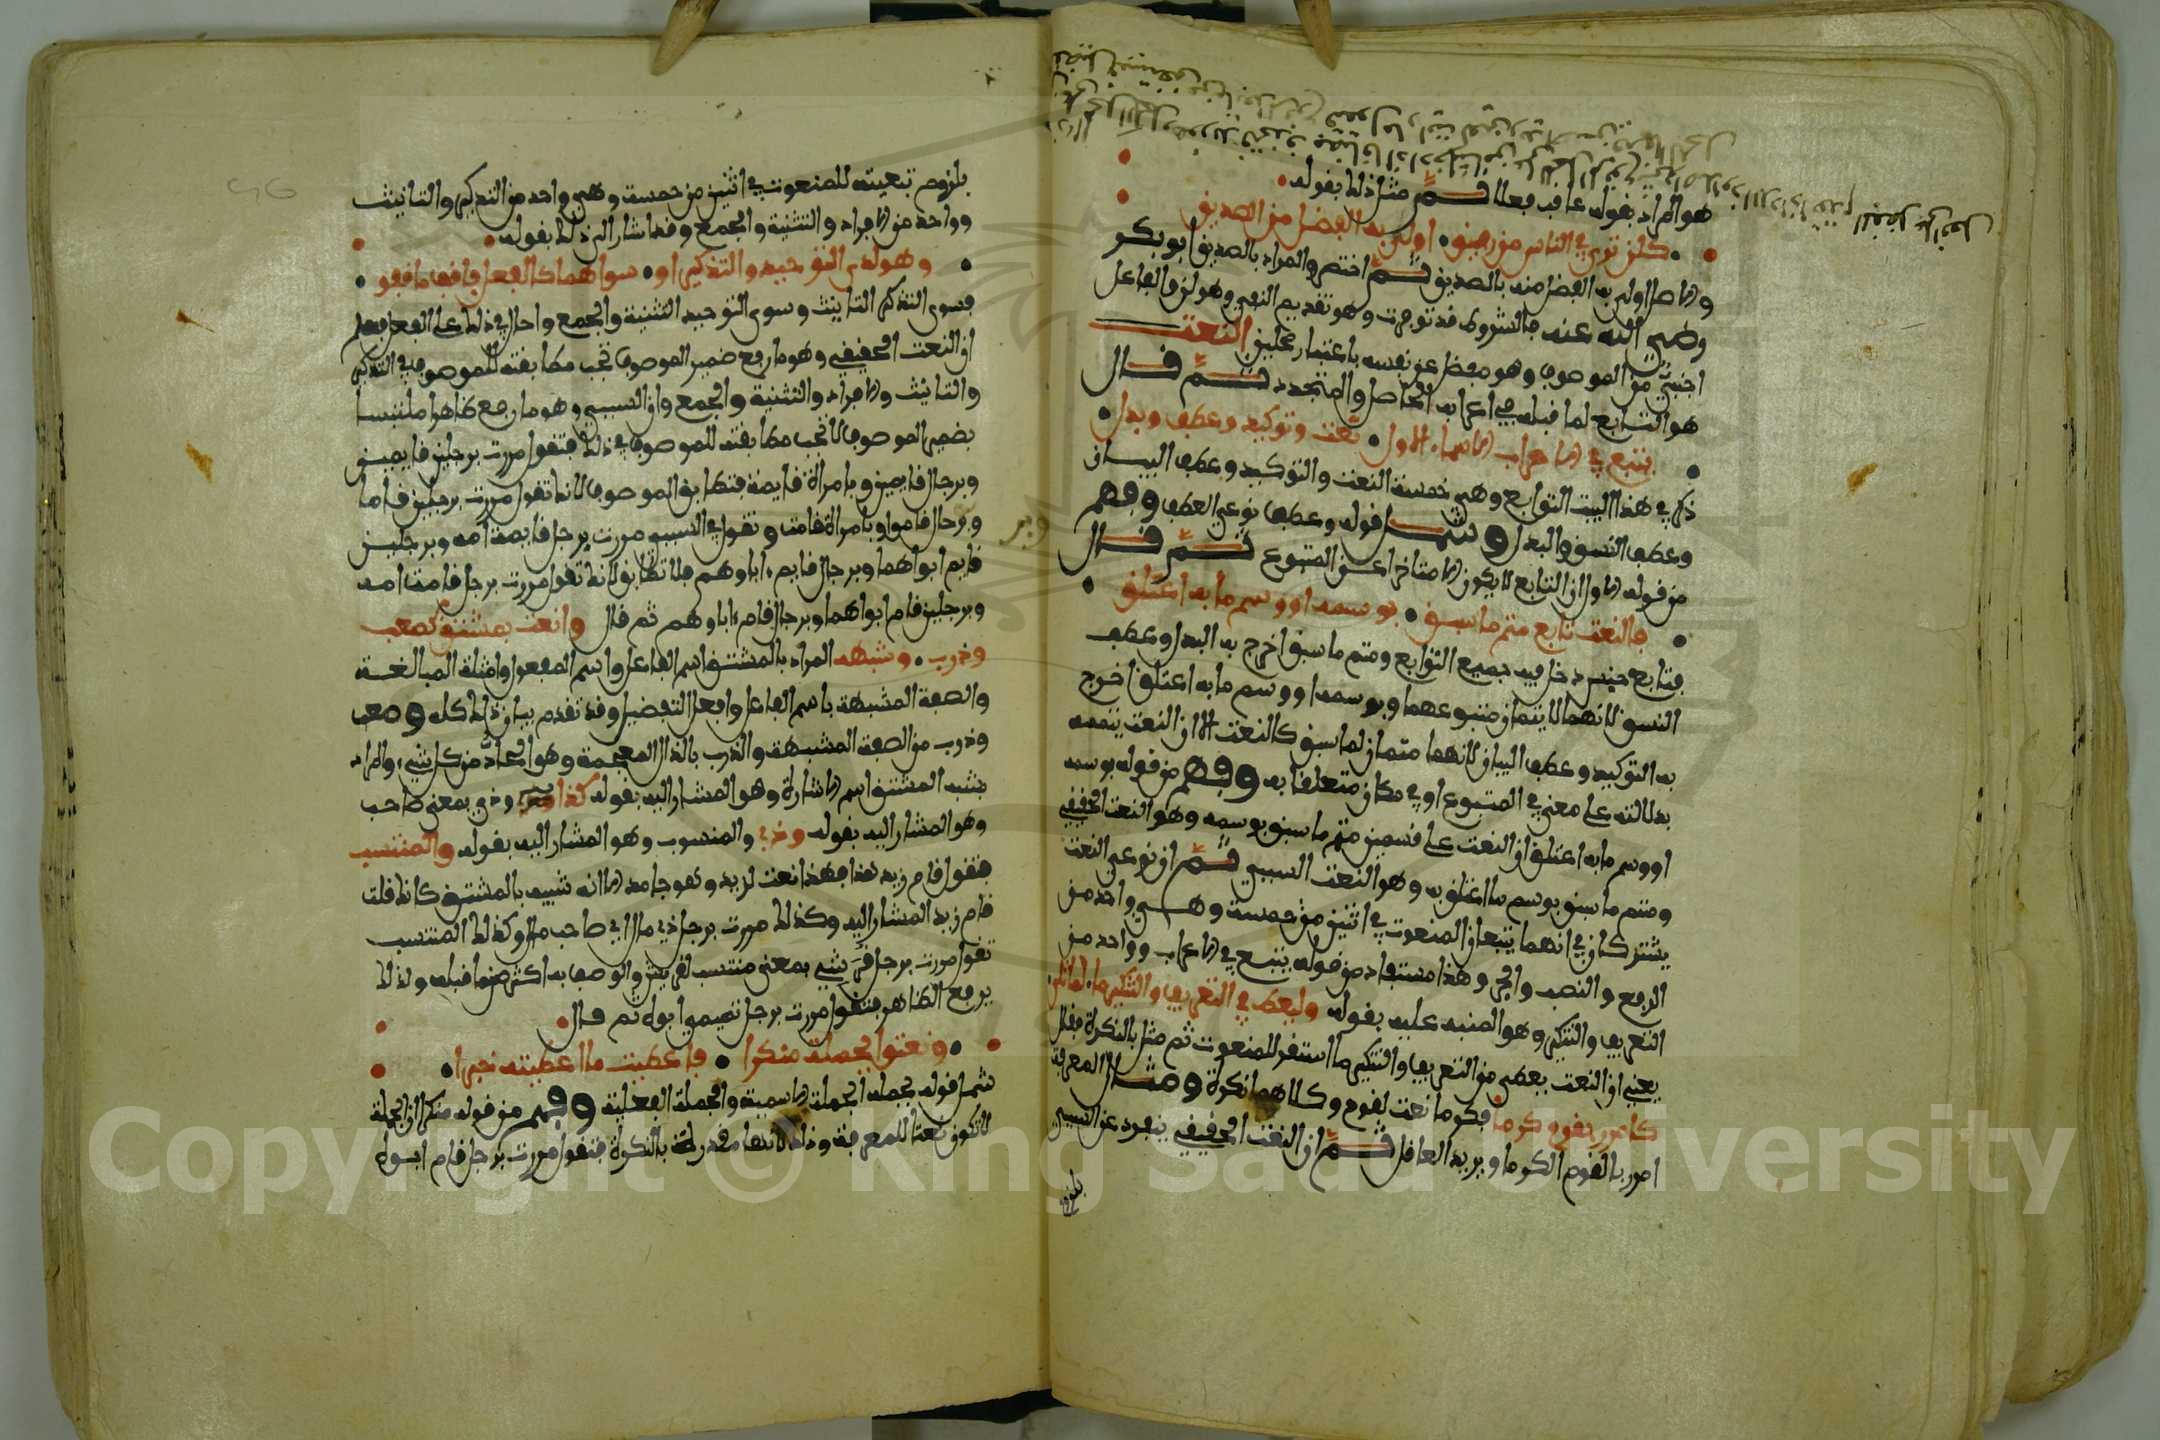 هو المراد بقوله عاقب فعلا ثم مثل ذلك بقوله
كلن ترى في الناس من رفيق اولى به الفضل من الصديق
والاصل اولى به الفضل منه بالصديق ثم اختصر والمراد بالصديق ابو بكر
رضي الله عنه فالشروط قد توفرت وهو تقديم النفي وهو لن والفاعل
اجنبي من الموصوف وهو مفضل عن نفسه باعتبار محلين النعت
هو التابع لما قبله في اعرابه الحاصل والمتجدد ثم قال
يتبع في الاعراب الاسماء الاول نعت وتوكيد وعطف وبدل
ذكر في هذا البيت التوابع وهي خمسة النعت والتوكيد وعطف البيان
وعطف النسق والبدل وشمل قوله وعطف نوعي العطف وفهم
من قوله الاول ان التابع لا يكون الا متاخرا عن المتبوع ثم قال
فالنعت تابع متم ما سبق بوسمه او وسم ما به اعتلق
فتابع جنس دخل فيه جميع التوابع ومتم ما سبق اخرج به البدل وعطف
النسق لانهما لا يتمان متبوعهما وبوسمه او وسم ما به اعتلق اخرج
به التوكيد وعطف البيان لانهما متمان لما سبق كالنعت الا ان النعت يتممه
بدلالته على معنى في المتبوع او في مكان متعلقا به وفهم من قوله بوسمه
او وسم ما به اعتلق ان النعت على قسمين متم ما سبق بوسمه وهو النعت الحقيقي
ومتم ما سبق بوسم ما اعتلق به وهو النعت السببي ثم ان نوعي النعت
يشتركان في انهما يتبعان المنعوت في اثنين من خمسة وهي واحد من
الرفع والنصب والجر وهذا مستفاد من قوله يتبع في الاعراب وواحد من
التعريف والتنكير وهو المنبه عليه بقوله وليعط في التعريف والتنكير ما لما تلا
يعني ان النعت يعطى من التعريف والتنكير ما استقر للمنعوت ثم مثل بالنكرة فقال
كامرر بقوم كرما فكرما نعت لقوم وكلاهما نكرة ومثال المعرفة
امرر بالقوم الكرما وبريد العاقل ثم ان النعت الحقيقي ينفرد عن السببي
بلزوم
بلزوم تبعيته للمنعوت في اثنين من خمسة وهي واحد من التذكير والتانيث
وواحد من الافراد والتثنية والجمع وقد اشار الى ذلك بقوله
وهو لدى التوحيد والتذكير او سواهما كالفعل فاقف ما قفو
فسوى التذكير التانيث وسوى التوحيد التثنية والجمع واحال في ذلك على الفعل فعلم
ان النعت الحقيقي وهو ما رفع ضمير الموصوف تجب مطابقته للموصوف في التذكير
والتانيث والافراد والتثنية والجمع وان السببي وهو ما رفع ظاهرا ملتبسا
بضمير الموصوف لا تجب مطابقته للموصوف في ذلك فتقول مررت برجلين قايمين
وبرجال قايمين وبامراة قايمة فتطابق الموصوف لانك تقول مررت برجلين قاما
وبرجال قاموا وبامراة قامت وتقول في السببي مررت برجل قايمة امه وبرجلين
قايم ابواهما وبرجال قايم اباوهم فلا تطابق لانك تقول مررت برجل قامت امه
وبرجلين قام ابواهما وبرجال قام اباوهم ثم قال وانعت بمشتق كصعب
وذرب وشبهه المراد بالمشتق اسم الفاعل واسم المفعول وامثلة المبالغة
والصفة المشبهة باسم الفاعل وافعل التفضيل وقد تقدم بيان ذلك كله وصعب
وذرب من الصفة المشبهة والذرب بالذال المعجمة وهو الحاد من كل شيء والمراد
بشبه المشتق اسم الاشارة وهو المشار اليه بقوله كذا وذي بمعنى صاحب
وهو المشار اليه بقوله وذي والمنسوب وهو المشار اليه بقوله والمنتسب
فتقول قام زيد هذا فهذا نعت لزيد وهو جامد الا انه شبيه بالمشتق كانك قلت
قام زيد المشار اليه وكذلك مررت برجل ذي مال اي صاحب مال وكذلك المنتسب
تقول مررت برجل قرشي بمعنى منتسب لقريش والوصف به اكثر مما قبله ولذلك
يرفع الظاهر فتقول مررت برجل تميمي ابوه ثم قال
ونعتوا بجملة منكرا فاعطيت ما اعطيته خبرا
شمل قوله بجملة الجملة الاسمية والجملة الفعلية وفهم من قوله منكرا ان الجملة
لا تكون نعتا للمعرفة وذلك لانها مقدرة بالنكرة فتقول مررت برجل قام ابوه
Copyright © King Saud University